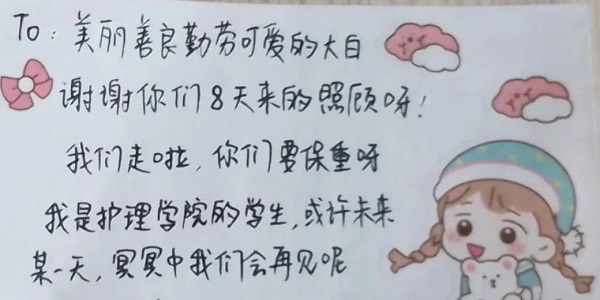 To：美丽善良勤劳可爱的大白
谢谢你们8天来的照顾呀！
我们走啦，你们要保重呀
我是护理学院的学生，或许未来
某一天，冥冥中我们会再见呢